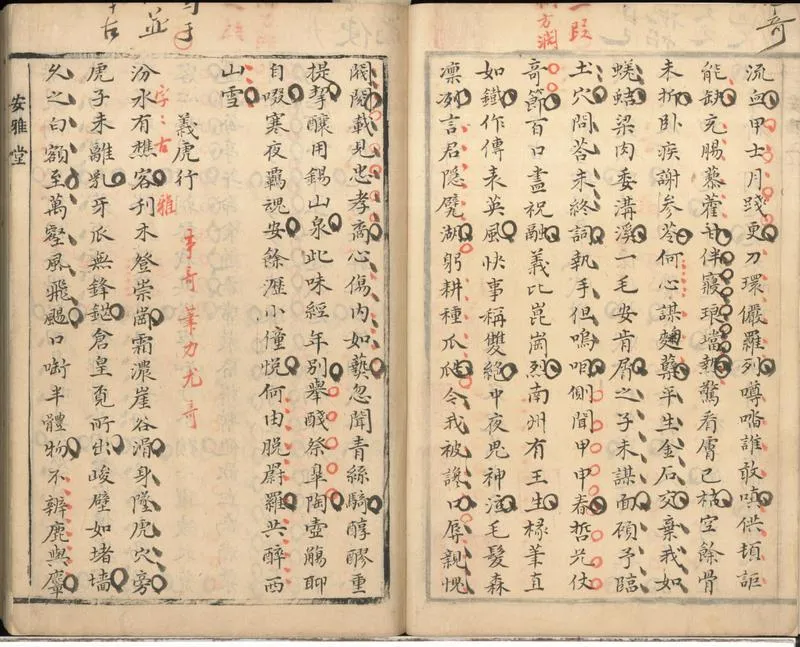 奇
一段
流血甲士月踐更刀環儼羅列噂嗒誰敢嗔供頓詎
能缺充腸慕藿甘伴寢琅璫熱驚看膚已枯空餘骨
未折卧疾謝参苓何心謀麴糱平生金石交棄我如
蟣蝨梁肉委溝溪一毛安肯屑之子未謀面碩予臨
土穴問答未終詞執手但嗚咽側聞甲申春哲兄仗
奇節百口盡祝融義比崑崗烈南州有王生椽筆直
如鐵作傳表英風快事稱雙絶中夜鬼神泣毛髮森
凛冽言君隱甓湖躬耕種瓜瓞令我被讒口辱親愧
閥閱載見忠孝裔心傷内如爇忽聞青絲騎醇醪重
提挈釀用錫山泉此味經年别舉醆祭臯陶壺觴聊
自啜寒夜羈魂安餘瀝小僮悦何由脱罻羅共醉西
山雪
義虎行
事奇筆力尤奇
字字古雅
汾水有樵客刊木登崇崗霜濃崖谷滑身墮虎穴旁
虎子未離乳牙爪無鋒鋩倉皇覓所出峻壁如堵墻
久之白額至萬壑風飛颺口啣半體物不辨鹿與麞
安雅堂